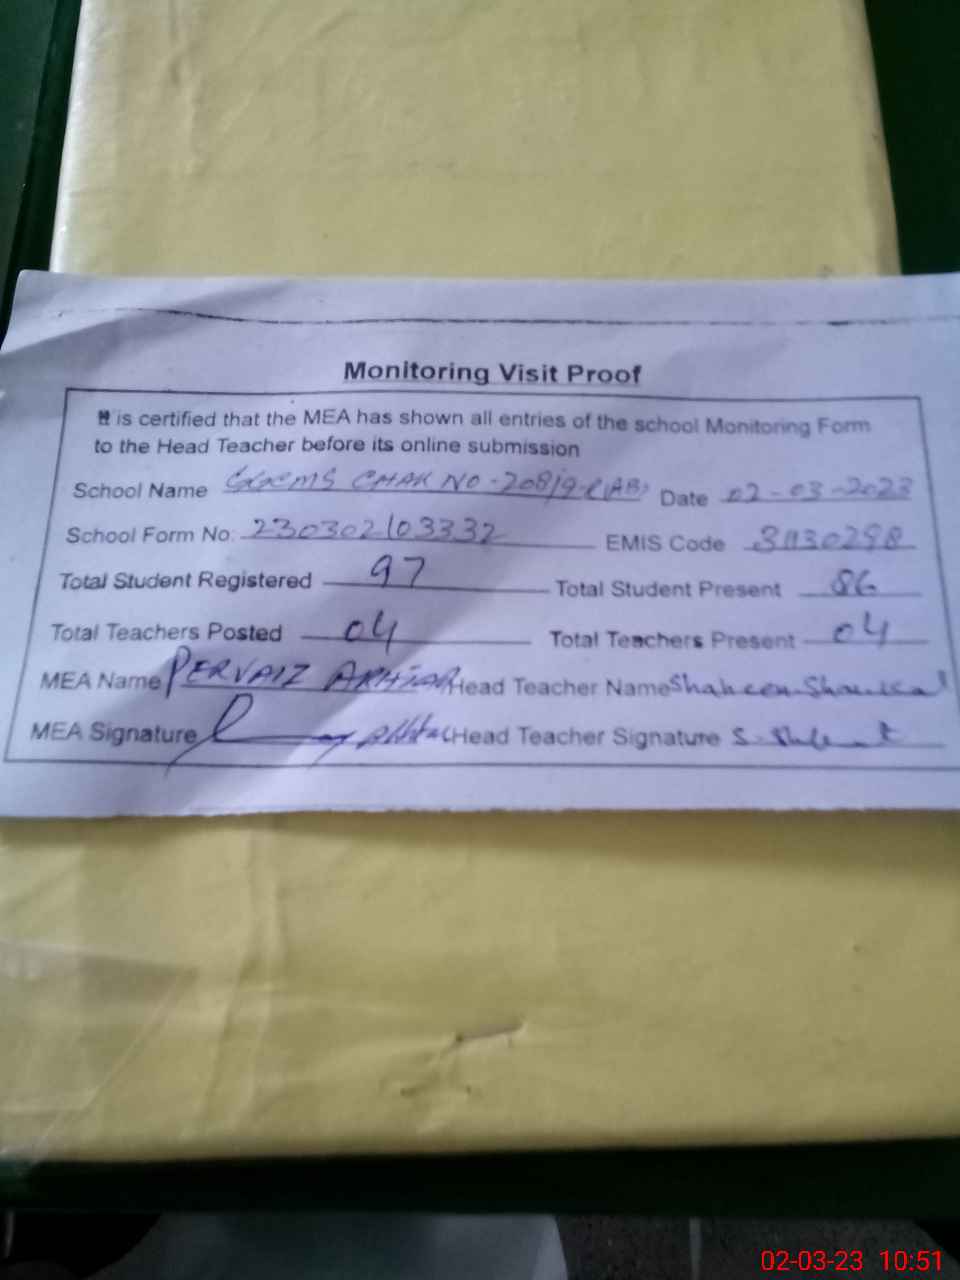 Monitoring Visit Proof
It is certified that the MEA has shown all entries of the school Monitoring Form
to the Head Teacher before its online submission
School Name CHAK NO-208/9-L(AB) Date 02-03-2023
School Form No: 230302103332 EMIS Code
Total Student Registered 97 Total Student Present 86
Total Teachers Posted 04 Total Teachers Present 04
MEA Name PERVAIZ AKHTAR Head Teacher Name Shaheen
MEA Signature Head Teacher Signature
02-03-23 10:51